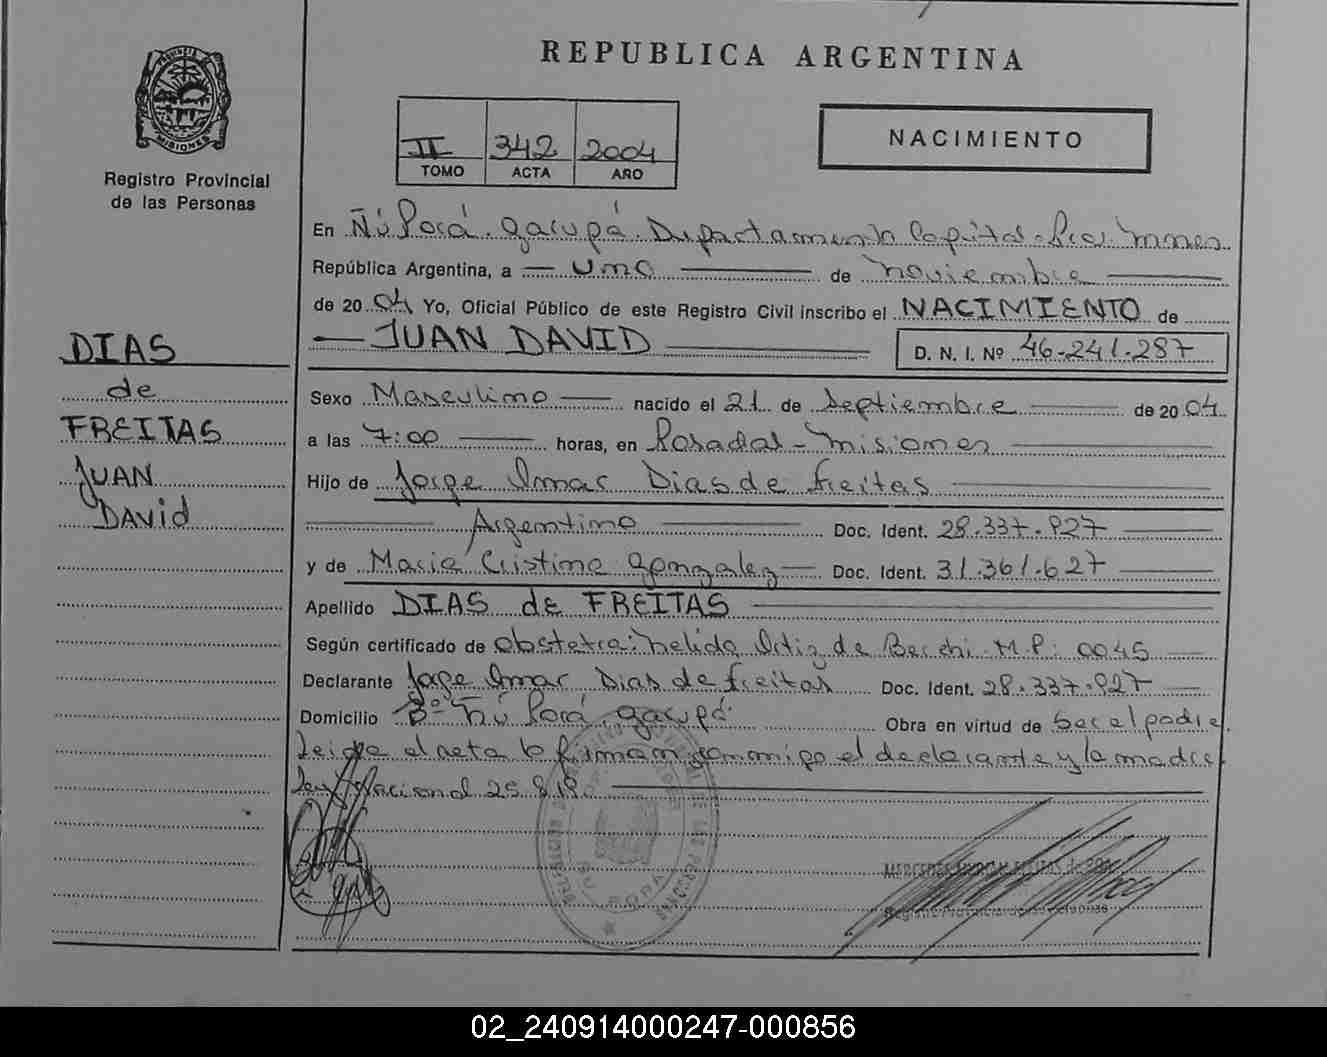 PROVINCIA DE
MISIONES
Registro Provincial
de las Personas
DIAS
de
FREITAS
JUAN
DAVid
REPUBLICA ARGENTINA
II 342 2004
TOMO ACTA AÑO
NACIMIENTO
En Ñú Porá. Garupá. Departamento Capital - Pcia. Mnes.
República Argentina, a — uno — de noviembre —
de 2004 Yo, Oficial Público de este Registro Civil inscribo el NACIMIENTO de
— JUAN DAVID — D. N. I. Nº 46-241.287
Sexo Masculino — nacido el 21 de Septiembre — de 2004
a las 7:00 — horas, en Posadas - Misiones —
Hijo de Jorge Omar Dias de Freitas —
— Argentino — Doc. Ident. 28.337.927 —
y de Maria Cristina Gonzalez — Doc. Ident. 31.361.627 —
Apellido DIAS de FREITAS —
Según certificado de obstetra: Nelida Ortiz de Becchi. M.P: 0045 —
Declarante Jorge Omar Dias de freitas Doc. Ident. 28.337.927 —
Domicilio Bº Ñú Porá. Garupá. Obra en virtud de Ser el padre
Leida el acta lo firman conmigo el declarante y la madre.
Ley Nacional 25.818. —
Registro Provincial de las Personas
02_240914000247-000856